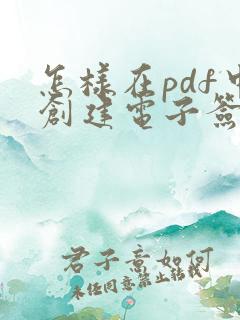 怎樣在pdf中
創建電子簽
君子意如何
未经同意禁止转载